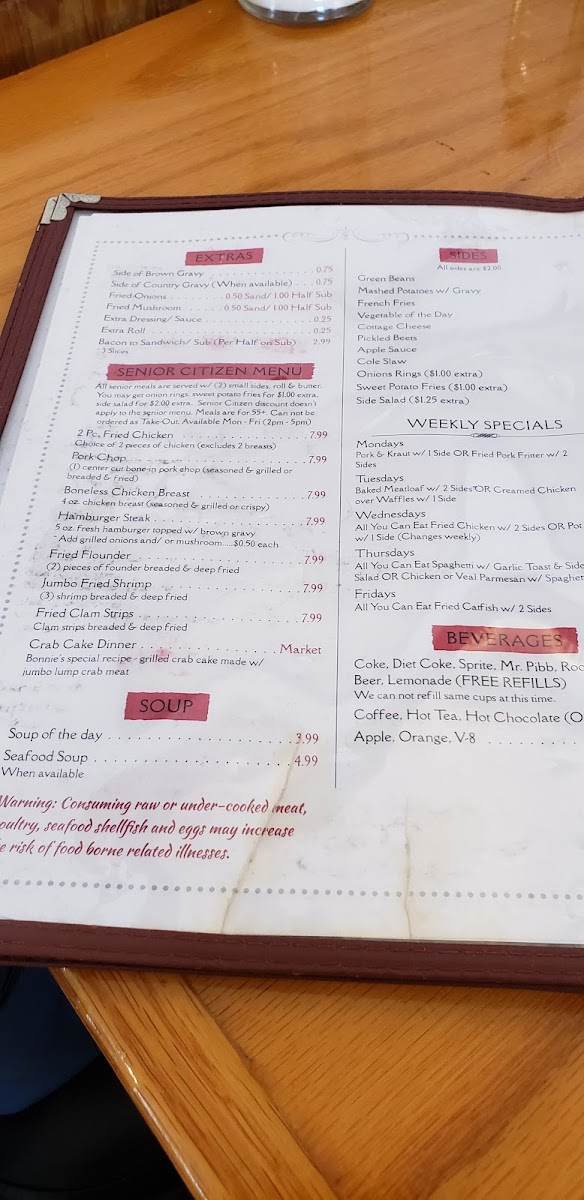 EXTRAS
Side of Brown Gravy 0.75
Side of Country Gravy (When available) 0.75
Fried Onions 0.50 Sand/ 1.00 Half Sub
Fried Mushroom 0.50 Sand/ 1.00 Half Sub
Extra Dressing/ Sauce 0.25
Extra Roll 0.25
Bacon to Sandwich/ Sub (Per Half on Sub) 2.99
3 Slices
SENIOR CITIZEN MENU
All senior meals are served w/ (2) small sides, roll & butter.
You may get onion rings, sweet potato fries for $1.00 extra,
side salad for $2.00 extra. Senior Citizen discount doesn't
apply to the senior menu. Meals are for 55+. Can not be
ordered as Take-Out. Available Mon - Fri (2pm - 5pm)
2 Pc. Fried Chicken 7.99
Choice of 2 pieces of chicken (excludes 2 breasts)
Pork Chop 7.99
(1) center cut bone-in pork chop (seasoned & grilled or
breaded & fried)
Boneless Chicken Breast 7.99
4 oz. chicken breast (seasoned & grilled or crispy)
Hamburger Steak 7.99
5 oz. fresh hamburger topped w/ brown gravy
- Add grilled onions and/ or mushroom.....$0.50 each
Fried Flounder 7.99
(2) pieces of founder breaded & deep fried
Jumbo Fried Shrimp 7.99
(3) shrimp breaded & deep fried
Fried Clam Strips 7.99
Clam strips breaded & deep fried
Crab Cake Dinner Market
Bonnie's special recipe - grilled crab cake made w/
jumbo lump crab meat
SOUP
Soup of the day 3.99
Seafood Soup 4.99
When available
Warning: Consuming raw or under-cooked meat,
oultry, seafood shellfish and eggs may increase
e risk of food borne related illnesses.
SIDES
All sides are $2.00
Green Beans
Mashed Potatoes w/ Gravy
French Fries
Vegetable of the Day
Cottage Cheese
Pickled Beets
Apple Sauce
Cole Slaw
Onions Rings ($1.00 extra)
Sweet Potato Fries ($1.00 extra)
Side Salad ($1.25 extra)
WEEKLY SPECIALS
Mondays
Pork & Kraut w/ 1 Side OR Fried Pork Fritter w/ 2
Sides
Tuesdays
Baked Meatloaf w/ 2 Sides OR Creamed Chicken
over Waffles w/ 1 Side
Wednesdays
All You Can Eat Fried Chicken w/ 2 Sides OR Pot
w/ 1 Side (Changes weekly)
Thursdays
All You Can Eat Spaghetti w/ Garlic Toast & Side
Salad OR Chicken or Veal Parmesan w/ Spaghet
Fridays
All You Can Eat Fried Catfish w/ 2 Sides
BEVERAGES
Coke, Diet Coke, Sprite, Mr. Pibb, Roo
Beer, Lemonade (FREE REFILLS)
We can not refill same cups at this time.
Coffee, Hot Tea, Hot Chocolate (O
Apple, Orange, V-8